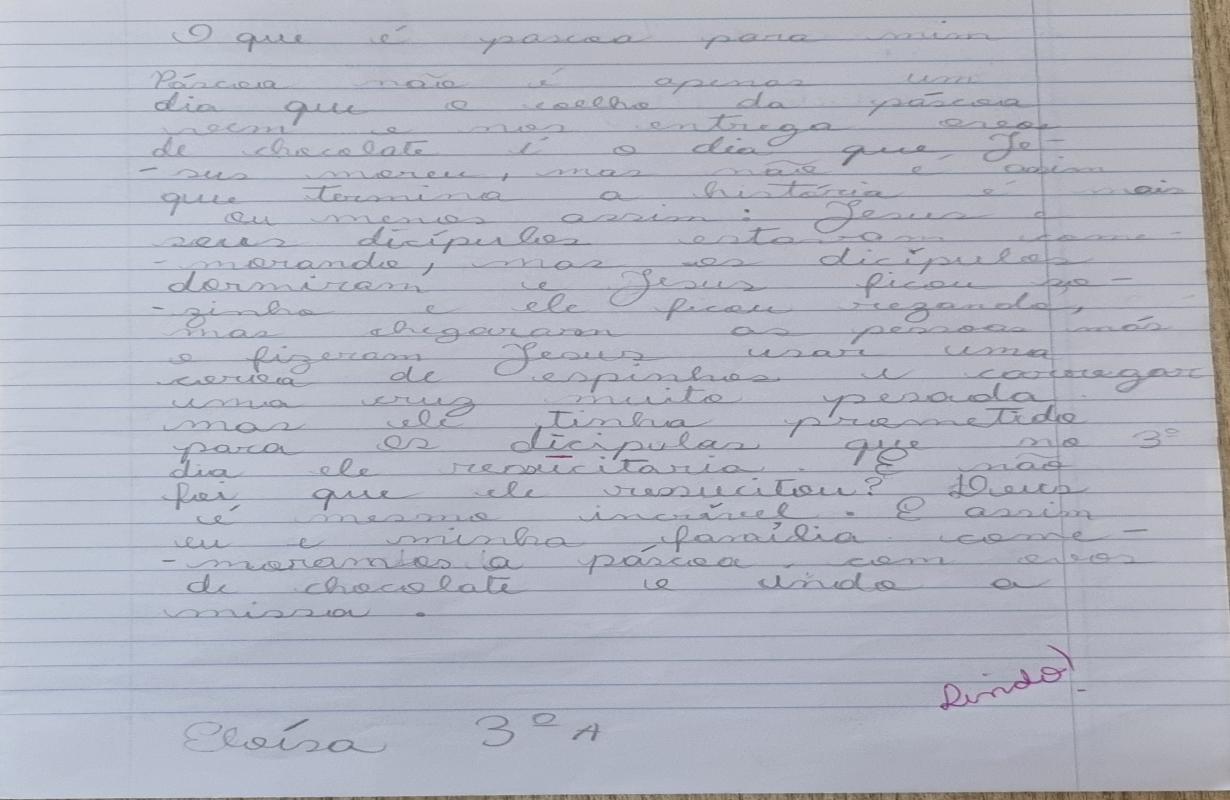 O que é pascoa para mim
Páscoa não é apenas um
dia que o coelho da páscoa
veem e nos entrega ovos
de chocolate é o dia que Je-
-sus moreu, mas não é asim
que termina a história é mais
ou menos assim: Jesus e
seus dicípulos estavam come-
-morando, mas os dicípulos
dormiram e Jesus ficou so-
-zinho e ele ficou rezando,
mas chegaram as pessoas más
e fizeram Jesus usar uma
coroa de espinhos e carregar
uma cruz muito pesada
mas ele tinha prometido
para os dicipulas que no 3º
dia ele ressucitaria. E não
foi que ele ressucitou? Deus
é mesmo incrível. E assim
eu e minha família come-
-moramos a páscoa com ovos
de chocolate e indo a
missa.
Lindo!
Eloísa 3º A